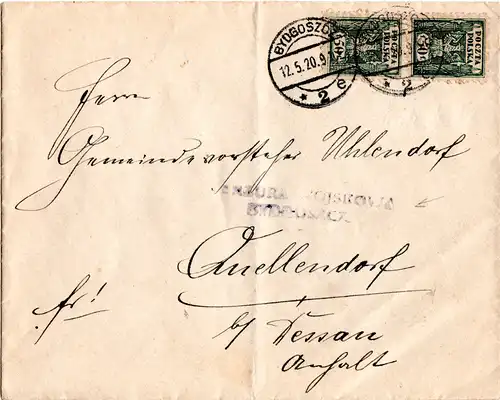 BYDGOSZCZ
12.5.20.9
* 2 e
POCZTA POLSKA
50
POCZTA POLSKA
50
Herrn
Gemeindevorsteher Uhlendorf
CENZURA WOJSKOWA
BYDGOSZCZ
Quellendorf
fr!
b/ Dessau
Anhalt